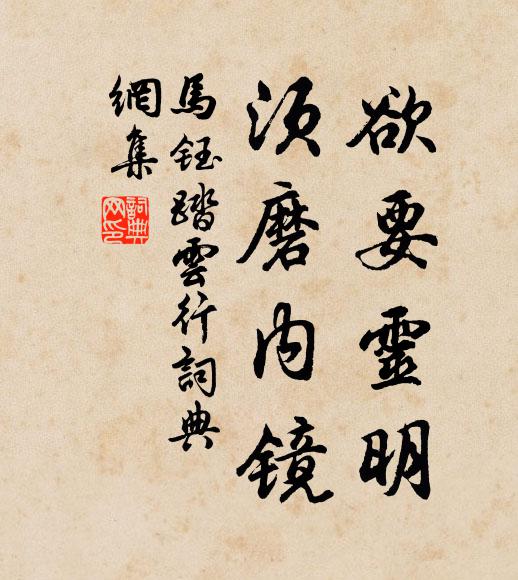 欲要靈明
須磨內鏡
馬鈺踏雲行詞典
網集
詞典網印